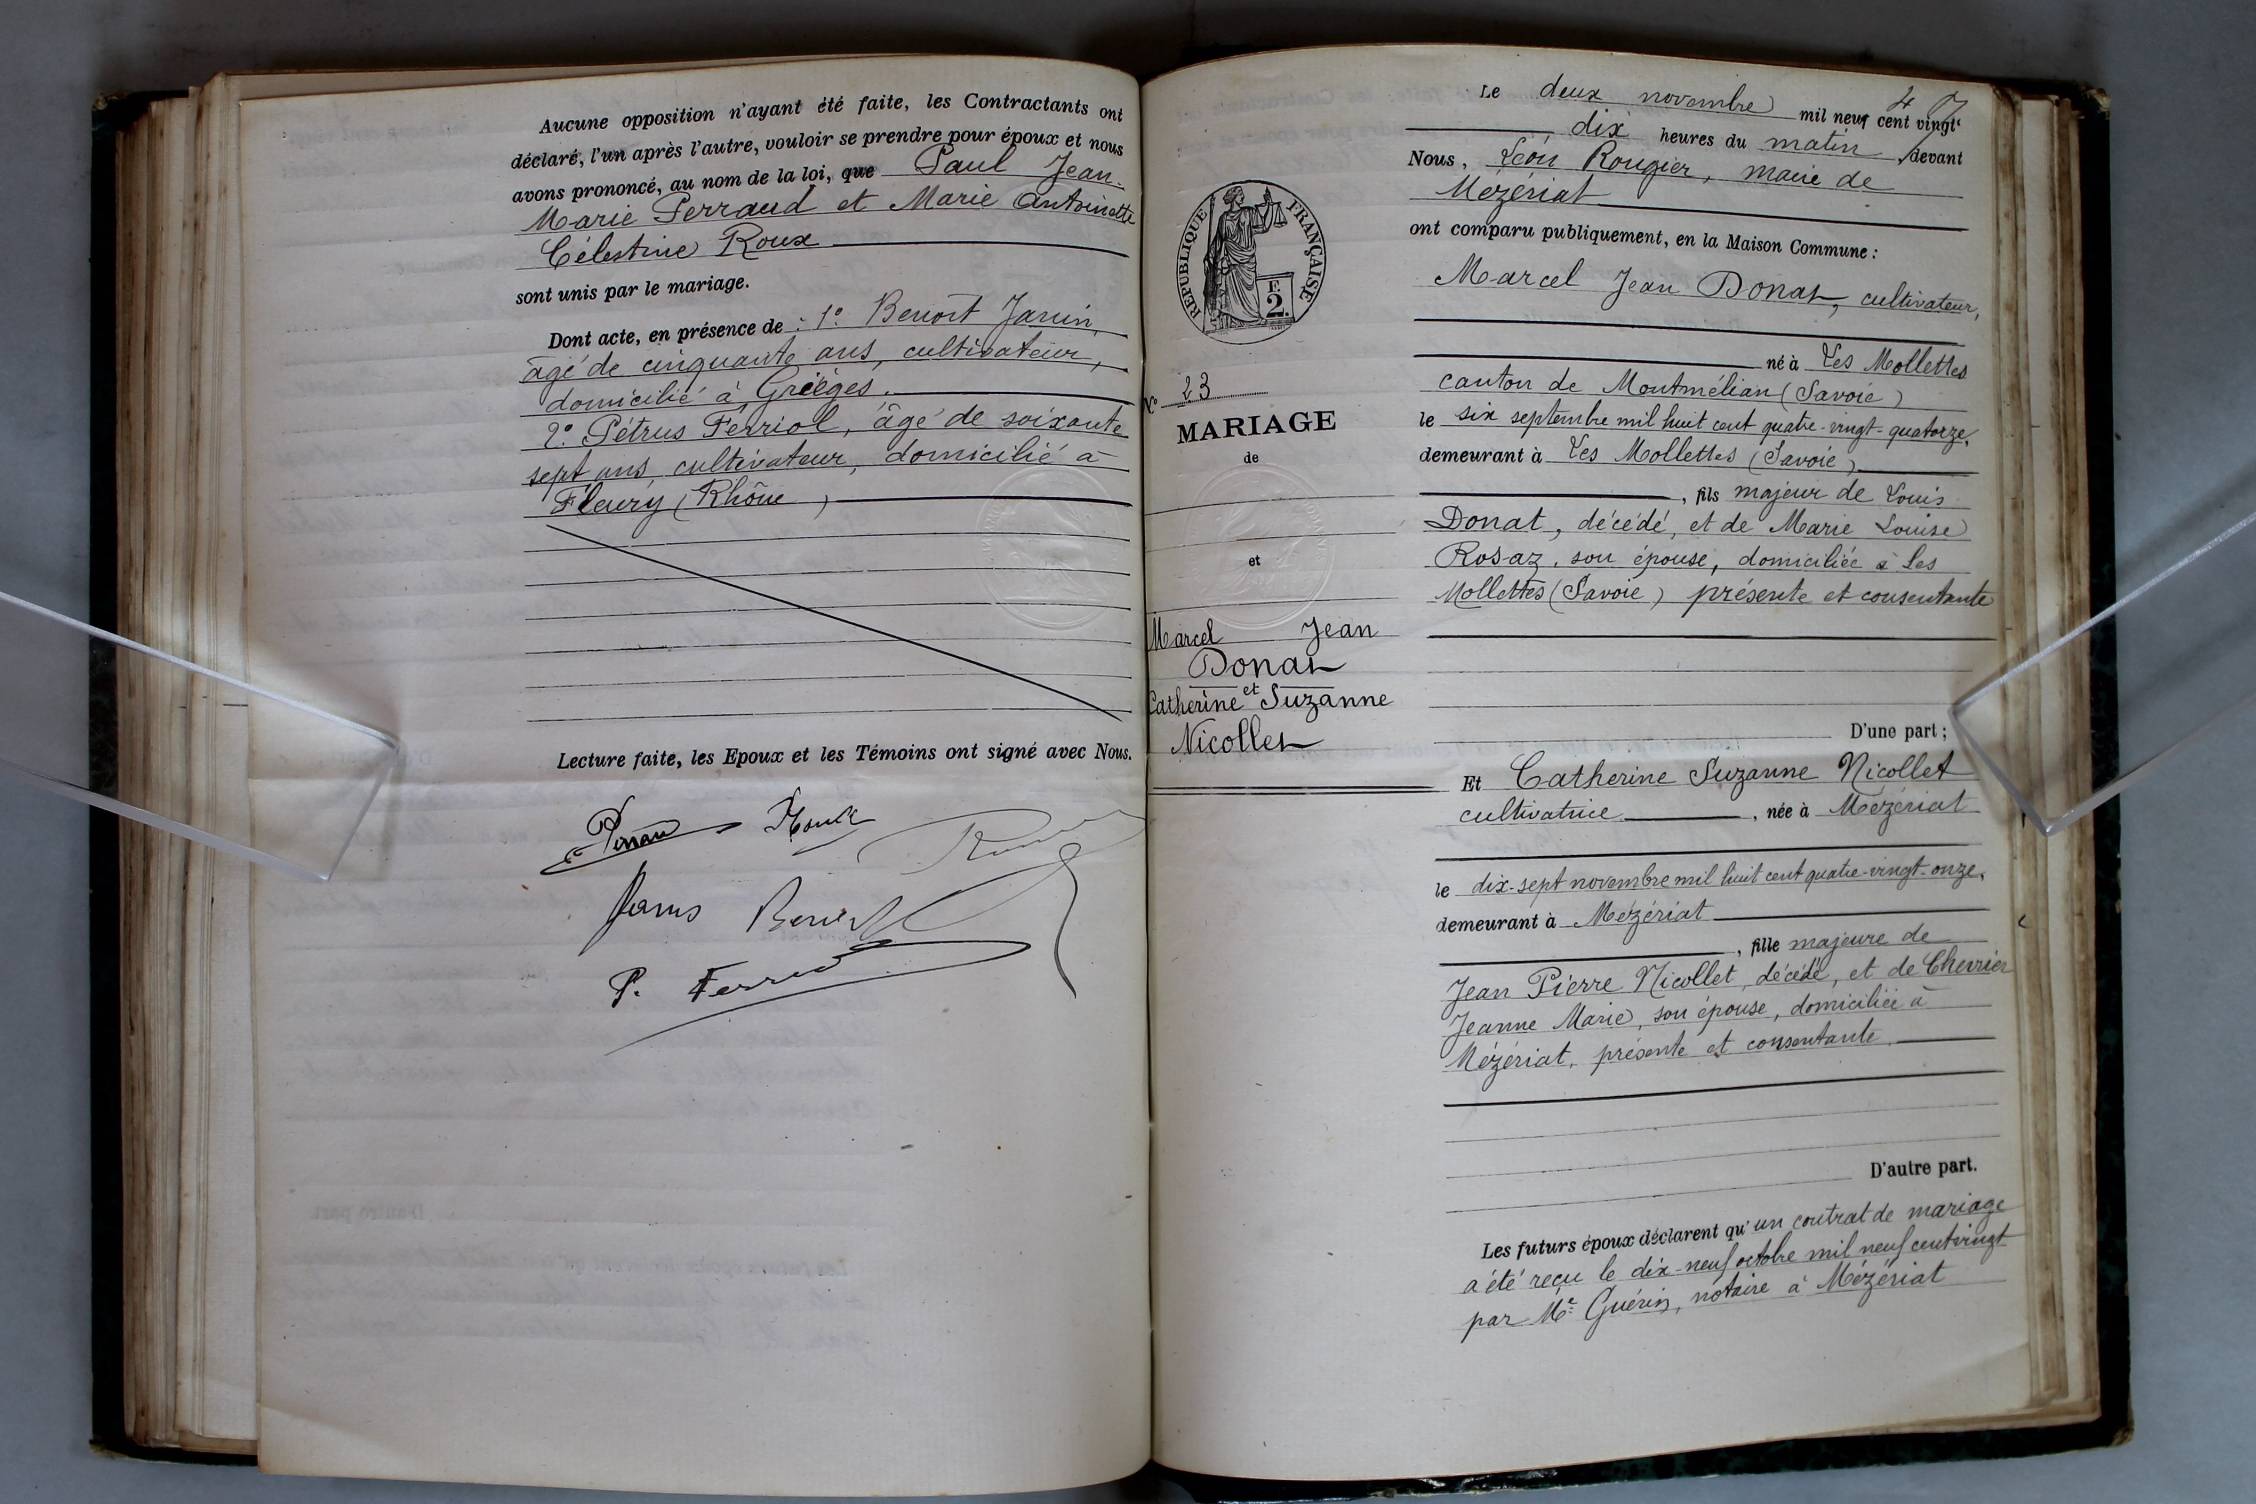 Aucune opposition n'ayant été faite, les Contractants ont
déclaré, l'un après l'autre, vouloir se prendre pour époux et nous
avons prononcé, au nom de la loi, que Paul Jean-
Marie Perraud et Marie Antoinette
Célestine Roux
sont unis par le mariage.
Dont acte, en présence de : 1° Benoît Janin,
âgé de cinquante ans, cultivateur,
domicilié à Grièges.
2° Pétrus Ferriol, âgé de soixante
sept ans, cultivateur, domicilié à
Fleury (Rhône)
Lecture faite, les Epoux et les Témoins ont signé avec Nous.
Perraud Roux
Janin Benoît
P. Ferriol
47
Le deux novembre mil neuf cent vingt
dix heures du matin, devant
Nous, Léon Rougier, maire de
Mézériat
ont comparu publiquement, en la Maison Commune :
RÉPUBLIQUE FRANÇAISE
E
2.
Marcel Jean Donat, cultivateur,
né à Les Mollettes
canton de Montmélian (Savoie)
le six septembre mil huit cent quatre-vingt-quatorze,
demeurant à Les Mollettes (Savoie)
, fils majeur de Louis
Donat, décédé, et de Marie Louise
Rosaz, son épouse, domiciliée à Les
Mollettes (Savoie) présente et consentante
N° 23
MARIAGE
de
et
Marcel Jean
Donat
et
Catherine Suzanne
Nicollet
D'une part ;
Et Catherine Suzanne Nicollet
cultivatrice, née à Mézériat
le dix-sept novembre mil huit cent quatre-vingt-onze,
demeurant à Mézériat
, fille majeure de
Jean Pierre Nicollet, décédé, et de Chevrier
Jeanne Marie, son épouse, domiciliée à
Mézériat, présente et consentante.
D'autre part.
Les futurs époux déclarent qu'un contrat de mariage
a été reçu le dix-neuf octobre mil neuf cent vingt
par Me Guérin, notaire à Mézériat